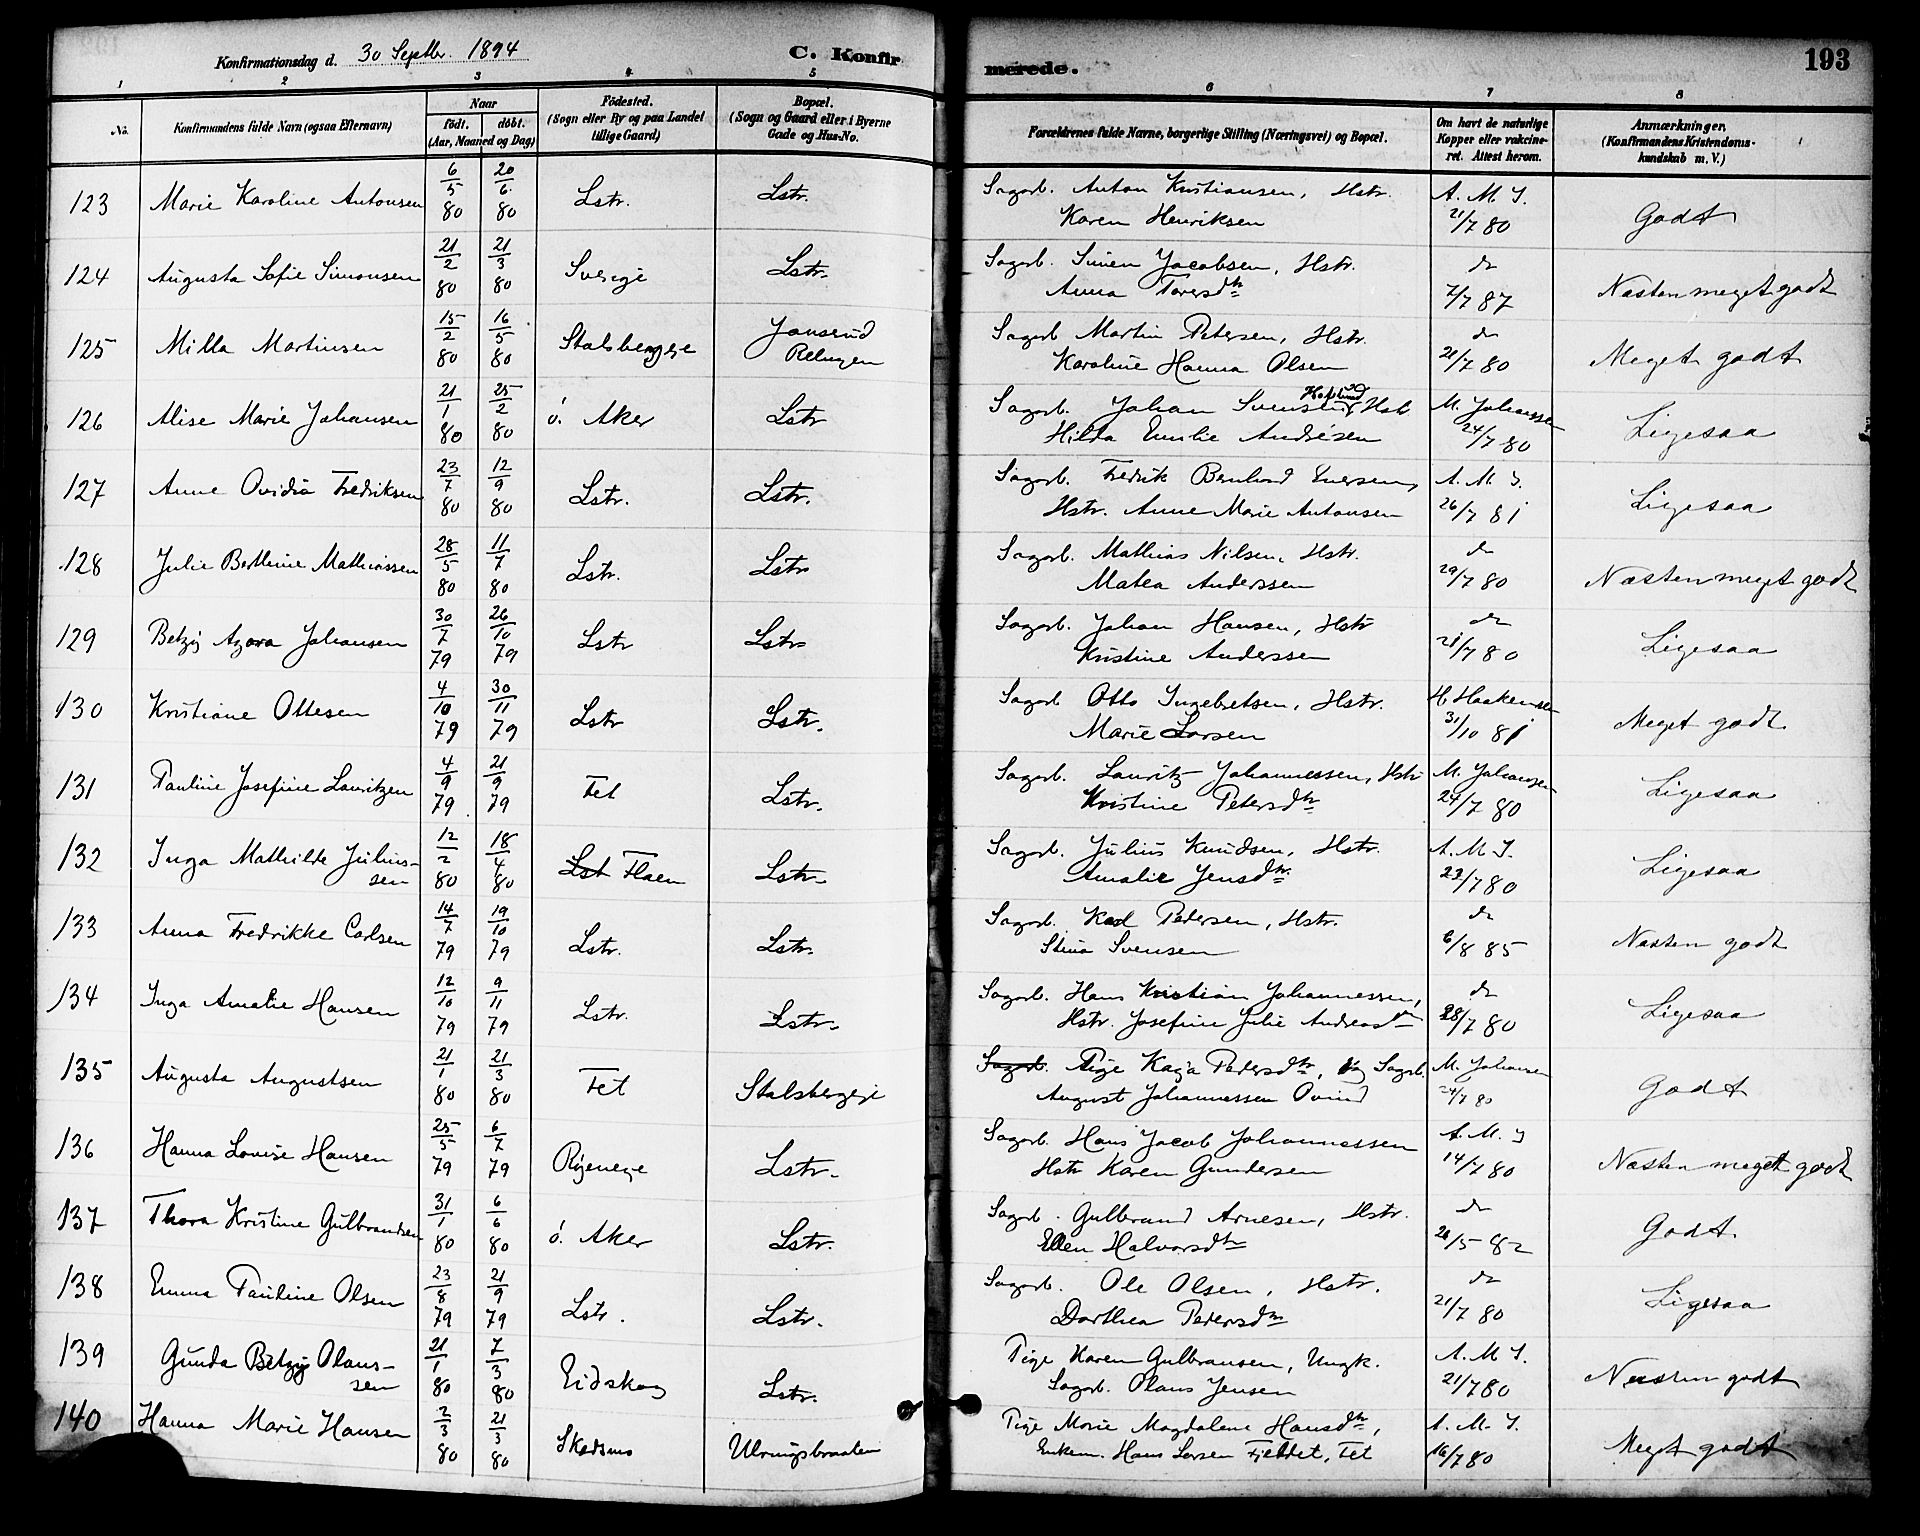 Konfirmationsdag d. 30 Septbr. 1894
C. Konfirmerede.
193
1 2 3 4 5 6 7 8
No.
Konfirmandens fulde Navn (ogsaa Efternavn)
Naar
födt. döbt.
(Aar, Maaned og Dag)
Födested.
(Sogn eller By og paa Landet
tillige Gaard)
Bopæl.
(Sogn og Gaard eller i Byerne
Gade og Hus-No.
Forældrenes fulde Navne, borgerlige Stilling (Næringsvei) og Bopæl.
Om havt de naturlige
Kopper eller vakcine-
ret. Attest herom.
Anmærkninger.
(Konfirmandens Kristendoms-
kundskab m. V.)
123 Marie Karoline Antonsen 6/5 80 20/6 80 Lstr. Lstr. Sagarb. Anton Kristiansen, Hstr. A. M. J.
Karen Henriksen 21/7 80 Godt
124 Augusta Sofie Simonsen 21/2 80 21/3 80 Sverige Lstr. Sagarb. Simen Jacobsen, Hstr. do
Anna Toresdtr 7/7 87 Næsten meget godt
125 Milla Martinsen 15/2 80 16/5 80 Stalsbergeje Jonserud
Relingen Sagarb Martin Petersen, Hstr. do
Karoline Hanna Olsen 21/7 80 Meget godt
126 Alise Marie Johansen 21/1 80 25/2 80 ö. Aker Lstr Sagarb. Johan Svensen, Hst M. Johanssen
Hilda Emilie Andrésen 24/7 80 Ligesaa
127 Anne Ovidia Fredriksen 23/7 80 12/9 80 Lstr. Lstr. Sagarb. Fredrik Bernhard Iversen, A. M. J.
Hstr. Anne Marie Antonsen 26/7 81 Ligesaa
128 Julie Bertheine Mathiassen 28/5 80 11/7 80 Lstr. Lstr Sagarb. Mathias Nilsen, Hstr. do
Matea Anderssen 29/7 80 Næsten meget godt
129 Betzy Azora Johansen 30/7 79 26/10 79 Lstr Lstr Sagarb. Johan Hansen, Hstr do
Kristine Anderssen 21/7 80 Ligesaa
130 Kristiane Ottesen 4/10 79 30/11 79 Lstr Lstr. Sagarb Otto Ingebretsen, Hstr. H Haakensen
Marie Larsen 31/10 81 Meget godt
131 Pauline Josefine Lauritzen 4/9 79 21/9 79 Fet Lstr. Sagarb. Lauritz Johannessen, Hstr M. Johansen
Kristine Petersdtr 24/7 80 Ligesaa
132 Inga Mathilde Julius-
sen 12/2 80 18/4 80 Lst Flaen Lstr. Sagarb. Julius Knudsen, Hstr. A. M. J.
Amalie Jensdtr 23/7 80 Ligesaa
133 Anna Fredrikke Carlsen 14/7 79 19/10 79 Lstr. Lstr. Sagarb. Karl Pedersen, Hstr. do
Stina Svensen 6/8 85 Næsten godt
134 Inga Amalie Hansen 12/10 79 9/11 79 Lstr. Lstr. Sagarb. Hans Kristian Johannessen, do
Hstr. Josefine Julie Andreasdtr 28/7 80 Ligesaa
135 Augusta Augustsen 21/1 80 21/3 80 Fet Stalsbergeje Sagarb. Pige Kaja Pedersdtr, Ug Sagrb. M. Johansen
August Johannessen Ovind 24/7 80 Godt
136 Hanna Lovise Hansen 25/5 79 6/7 79 Ryeneje Lstr. Sagarb. Hans Jacob Johannessen A. M. J
Hstr Karen Gundersen 14/7 80 Næsten meget godt
137 Thora Kristine Gulbrandsen 31/1 80 6/6 80 ö. Aker Lstr. Sagarb. Gulbrand Arnesen, Hstr. do
Ellen Halvorsdtr 26/5 82 Godt
138 Emma Pauline Olsen 23/8 79 21/9 79 Lstr. Lstr. Sagarb. Ole Olsen, Hstr. do
Dorthea Pedersdtr 21/7 80 Ligesaa
139 Gunda Betzy Olaus-
sen 21/1 80 7/3 80 Eidskog Lstr. Pige Karen Gulbransen, Ungk. A. M J.
Sagarb. Olaus Jensen 21/7 80 Næsten godt
140 Hanna Marie Hansen 2/3 80 21/3 80 Skedsmo Pige Marie Magdalene Hansdtr, A. M. J.
Enkem. Hans Larsen Fjeldet, Fet 16/7 80 Meget godt